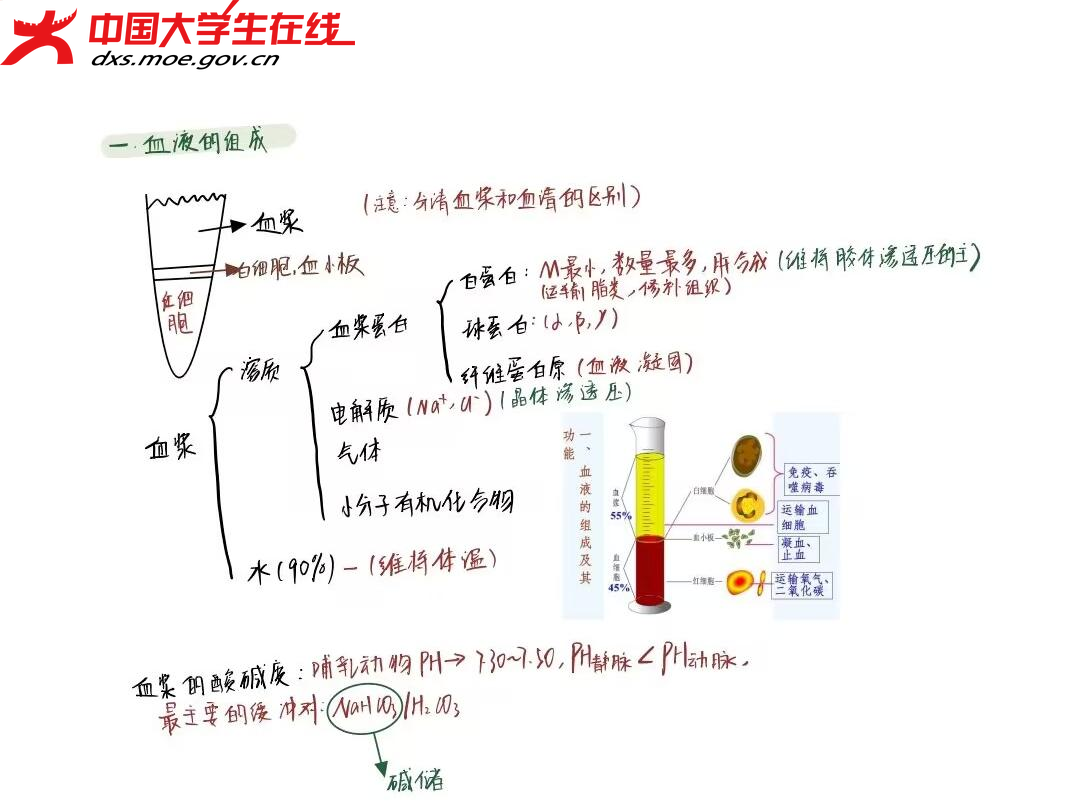 中国大学生在线
dxs.moe.gov.cn
一.血液的组成
(注意:分清血浆和血清的区别)
血浆
白细胞,血小板
红细
胞
白蛋白: M最小,数量最多,肝合成(维持胶体渗透压的主)
(运输脂类,修补组织)
血浆蛋白
球蛋白:(α,β,γ)
纤维蛋白原(血液凝固)
溶质
电解质(Na⁺,Cl⁻)(晶体渗透压)
血浆
气体
小分子有机化合物
水(90%)-(维持体温)
一、血液的组成及其
功能
血浆
55%
血细胞
45%
白细胞
血小板
红细胞
免疫、吞
噬病毒
运输血
细胞
凝血、
止血
运输氧气、
二氧化碳
血浆的酸碱度:哺乳动物PH→7.30~7.50,PH静脉<PH动脉.
最主要的缓冲对:NaHCO₃/H₂CO₃
碱储